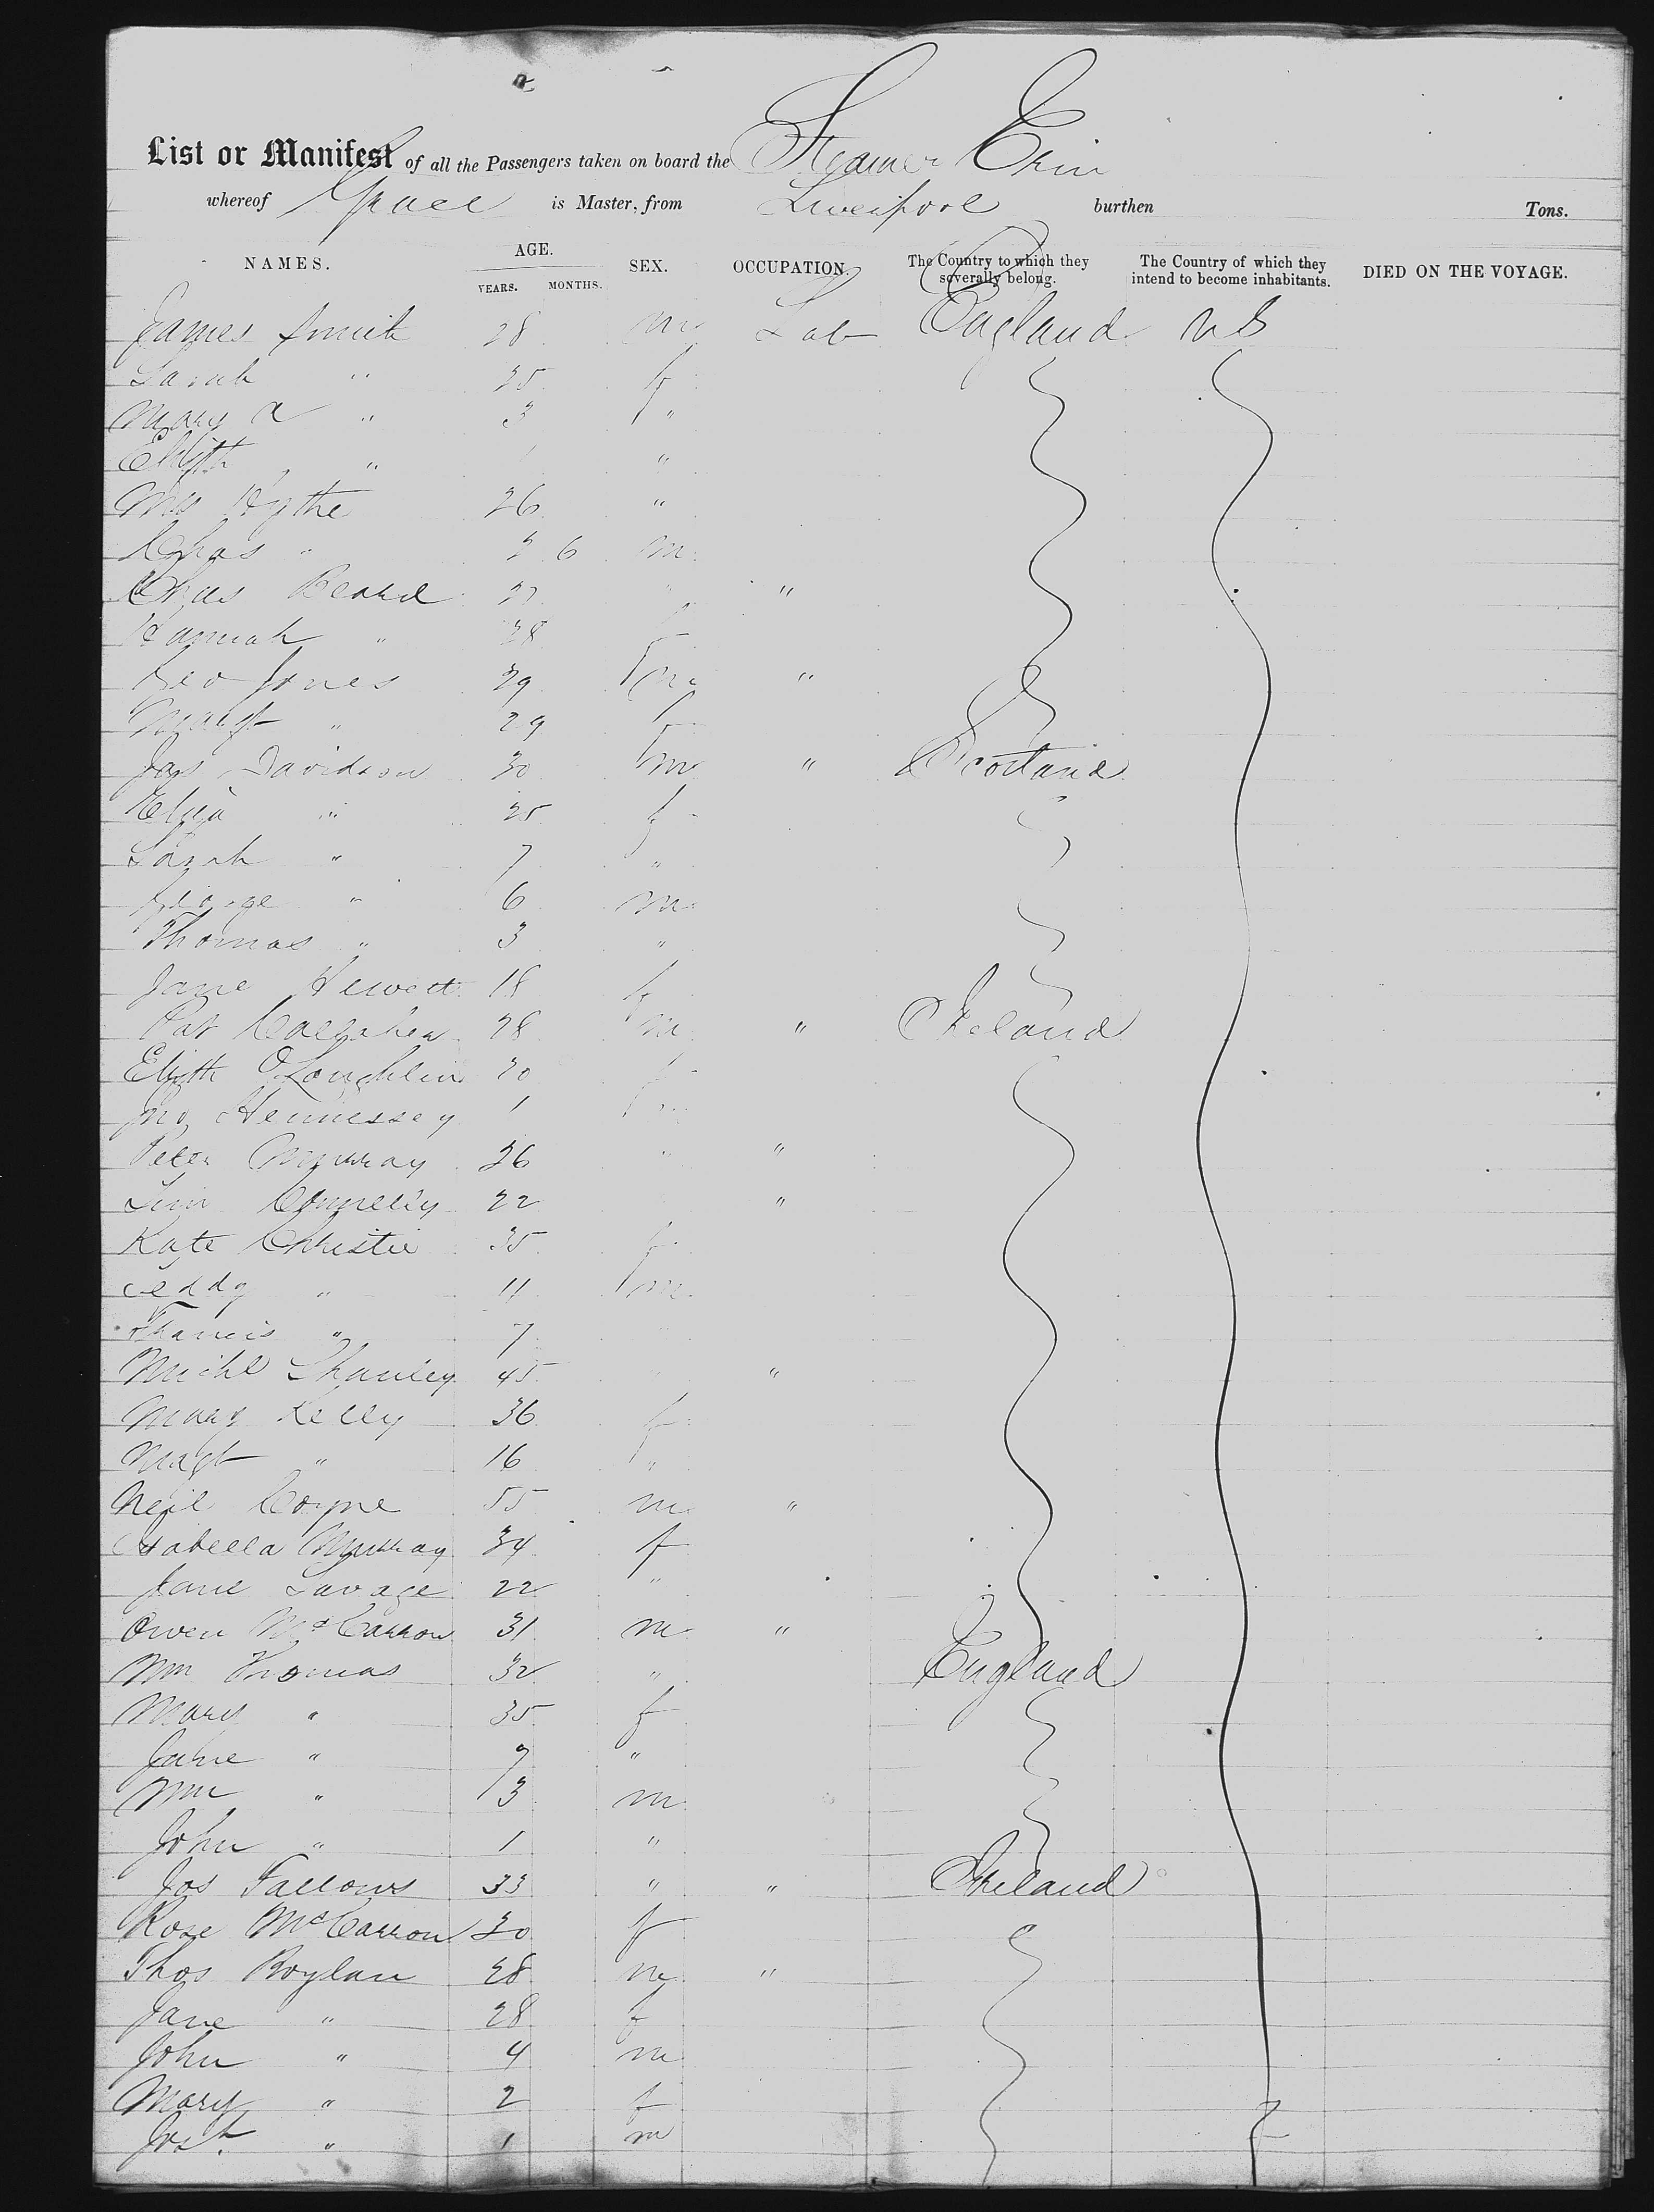 List or Manifest of all the Passengers taken on board the Steamer Erin
whereof Grace is Master, from Liverpool burthen Tons.
NAMES. AGE. SEX. OCCUPATION. The Country to which they severally belong. The Country of which they intend to become inhabitants. DIED ON THE VOYAGE.
YEARS. MONTHS.
James Smith 28 m Lab England US
Sarah " 25 f
Mary A " 3 "
Elizth " "
Mrs Hythe 26 "
Chas " 2 6 m
Chas Beard 27 " "
Hannah " 28 f
Geo Jones 29 m "
Margt " 29 f
Jas Davidson 30 m " Scotland
Eliza " 25 f
Sarah " 7 "
George " 6 m
Thomas " 3 "
Jane Hewett 18 f
Pat Callaghan 28 m " Ireland
Elizth O'Loughlin 20 f
Jno Hennessey 1 m
Peter Murray 26 " "
Tim Connelly 22 "
Kate Christie 35 f
Teddy " 11 m
Francis " 7
Michl Shanley 45 " "
Mary Kelly 36 f
Magt " 16 "
Neil Coyne 55 m "
Isabella Murray 34 f
Jane Savage 22 "
Owen McCarron 31 m "
Wm Thomas 32 " England
Mary " 35 f
Jane " 7 "
Wm " 3 m
John " 1 "
Jos Fallows 33 " " Ireland
Rose McCarron 30 f
Thos Boylan 28 m "
Jane " 28 f
John " 4 m
Mary " 2 f
Josh " 1 m